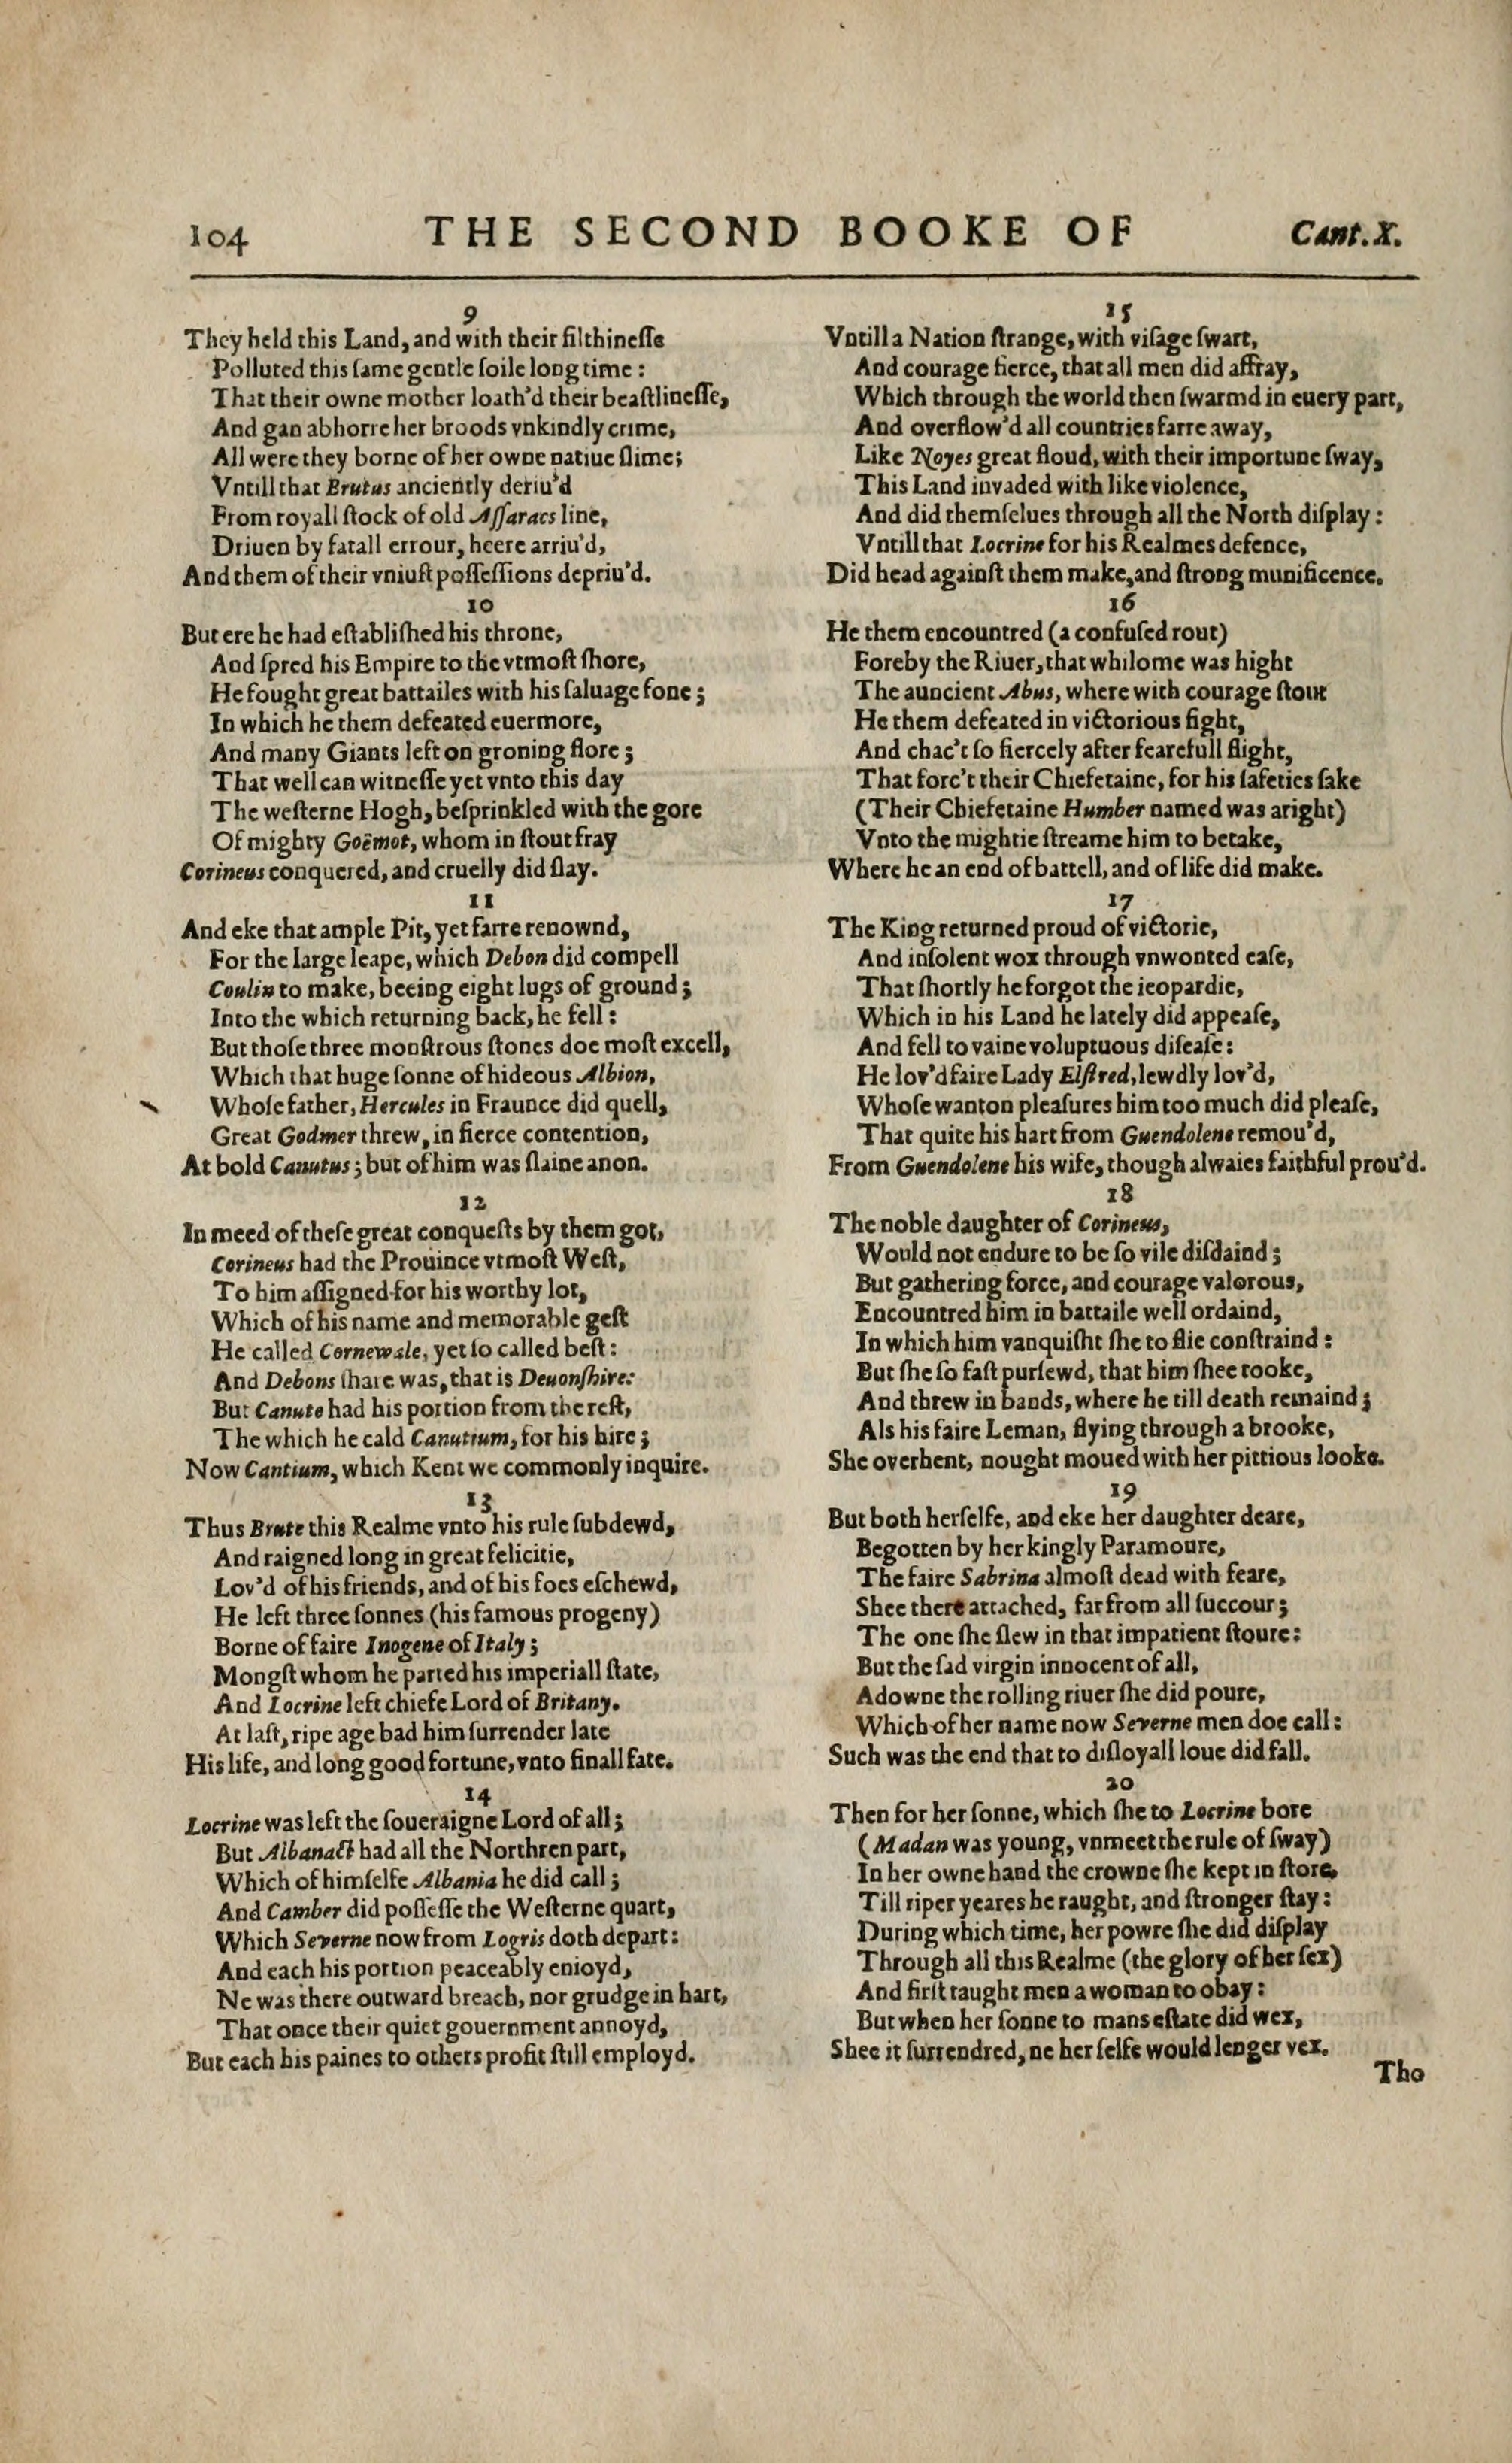 104 THE SECOND BOOKE OF Cant. X.
9
They held this Land, and with their filthineſſe
Polluted this ſame gentle ſoile long time:
That their owne mother loath'd their beaſtlineſſe,
And gan abhorre her broods vnkindly crime,
All were they borne of her owne natiue ſlime;
Vntill that Brutus anciently deriu'd
From royall ſtock of old Aſſaracs line,
Driuen by fatall errour, heere arriu'd,
And them of their vniuſt poſſeſſions depriu'd.
10
But ere he had eſtabliſhed his throne,
And ſpred his Empire to the vtmoſt ſhore,
He fought great battailes with his ſaluage fone;
In which he them defeated euermore,
And many Giants left on groning flore;
That well can witneſſe yet vnto this day
The weſterne Hogh, beſprinkled with the gore
Of mighty Goëmot, whom in ſtout fray
Corineus conquered, and cruelly did ſlay.
11
And eke that ample Pit, yet farre renownd,
For the large leape, which Debon did compell
Coulin to make, beeing eight lugs of ground;
Into the which returning back, he fell:
But thoſe three monſtrous ſtones doe moſt excell,
Which that huge ſonne of hideous Albion,
Whoſe father, Hercules in Fraunce did quell,
Great Godmer threw, in fierce contention,
At bold Canutus; but of him was ſlaine anon.
12
In meed of theſe great conqueſts by them got,
Corineus had the Prouince vtmoſt Weſt,
To him aſſigned for his worthy lot,
Which of his name and memorable geſt
He called Cornewale, yet ſo called beſt:
And Debons ſhare was, that is Deuonſhire:
But Canute had his portion from the reſt,
The which he cald Canutium, for his hire;
Now Cantium, which Kent we commonly inquire.
13
Thus Brute this Realme vnto his rule ſubdewd,
And raigned long in great felicitie,
Lov'd of his friends, and of his foes eſchewd,
He left three ſonnes (his famous progeny)
Borne of faire Inogene of Italy;
Mongſt whom he parted his imperiall ſtate,
And Locrine left chiefe Lord of Britany.
At laſt, ripe age bad him ſurrender late
His life, and long good fortune, vnto finall fate.
14
Locrine was left the ſoueraigne Lord of all;
But Albanact had all the Northren part,
Which of himſelfe Albania he did call;
And Camber did poſſeſſe the Weſterne quart,
Which Severne now from Logris doth depart:
And each his portion peaceably enioyd,
Ne was there outward breach, nor grudge in hart,
That once their quiet gouernment annoyd,
But each his paines to others profit ſtill employd.
15
Vntill a Nation ſtrange, with viſage ſwart,
And courage fierce, that all men did affray,
Which through the world then ſwarmd in euery part,
And overflow'd all countries farre away,
Like Noyes great floud, with their importune ſway,
This Land invaded with like violence,
And did themſelues through all the North diſplay:
Vntill that Locrine for his Realmes defence,
Did head againſt them make, and ſtrong munificence.
16
He them encountred (a confuſed rout)
Foreby the Riuer, that whilome was hight
The auncient Abus, where with courage ſtout
He them defeated in victorious fight,
And chac't ſo fiercely after fearefull flight,
That forc't their Chiefetaine, for his ſafeties ſake
(Their Chiefetaine Humber named was aright)
Vnto the mightie ſtreame him to betake,
Where he an end of battell, and of life did make.
17
The King returned proud of victorie,
And inſolent wox through vnwonted eaſe,
That ſhortly he forgot the ieopardie,
Which in his Land he lately did appeaſe,
And fell to vaine voluptuous diſeaſe:
He lov'd faire Lady Elſtred, lewdly lov'd,
Whoſe wanton pleaſures him too much did pleaſe,
That quite his hart from Guendolene remou'd,
From Guendolene his wife, though alwaies faithful prou'd.
18
The noble daughter of Corineus,
Would not endure to be ſo vile diſdaind;
But gathering force, and courage valorous,
Encountred him in battaile well ordaind,
In which him vanquiſht ſhe to flie conſtraind:
But ſhe ſo faſt purſewd, that him ſhee tooke,
And threw in bands, where he till death remaind;
Als his faire Leman, flying through a brooke,
She overhent, nought moued with her pittious looke.
19
But both herſelfe, and eke her daughter deare,
Begotten by her kingly Paramoure,
The faire Sabrina almoſt dead with feare,
Shee there attached, far from all ſuccour;
The one ſhe ſlew in that impatient ſtoure:
But the ſad virgin innocent of all,
Adowne the rolling riuer ſhe did poure,
Which of her name now Severne men doe call:
Such was the end that to diſloyall loue did fall.
20
Then for her ſonne, which ſhe to Locrine bore
(Madan was young, vnmeet the rule of ſway)
In her owne hand the crowne ſhe kept in ſtore,
Till riper yeares he raught, and ſtronger ſtay:
During which time, her powre ſhe did diſplay
Through all this Realme (the glory of her ſex)
And firſt taught men a woman to obay:
But when her ſonne to mans eſtate did wex,
Shee it ſurrendred, ne her ſelfe would lenger vex.
Tho